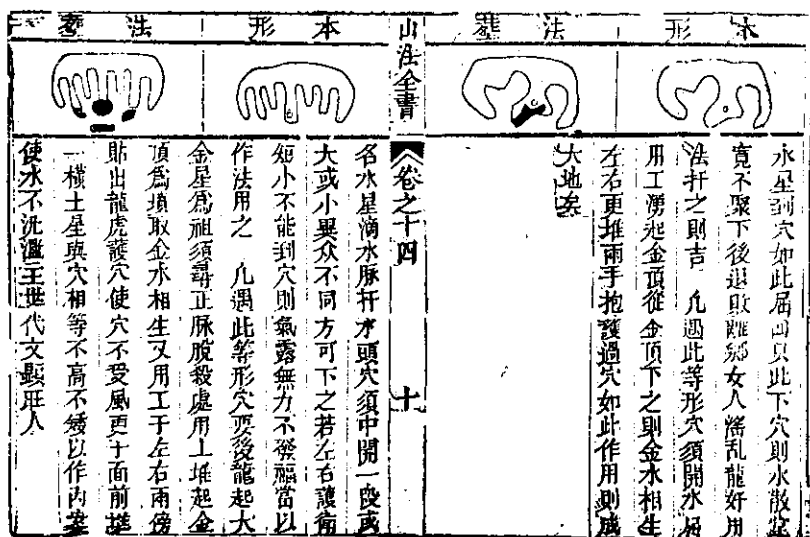 本形
法葬
水星到穴如此屈曲只此下穴則水散
竟不聚下後退敗離鄉女人淫乱龍奸用
法扦之則吉 凡遇此等形穴須開水
用工湧起金頂從金頂下之則金水相生
左右更堆兩手抱護過穴如此作用則成
大地矣
山法全書
卷之十四
十
本形
法葬
名水星滴水脉扦水頭穴須中開一段或
大或小異众不同方可下之若左右護衛
短小不能到穴則氣露無力不發福當以
作法用之 凡遇此等形穴要後龍起大
金星爲祖須尋正脉脫殺處用土堆起金
頂爲墳取金水相生又用工于左右兩傍
貼出龍虎護穴使穴不受風更于面前
一橫土星與穴相等不高不矮以作內案
使水不汎濫主世代文顯旺人